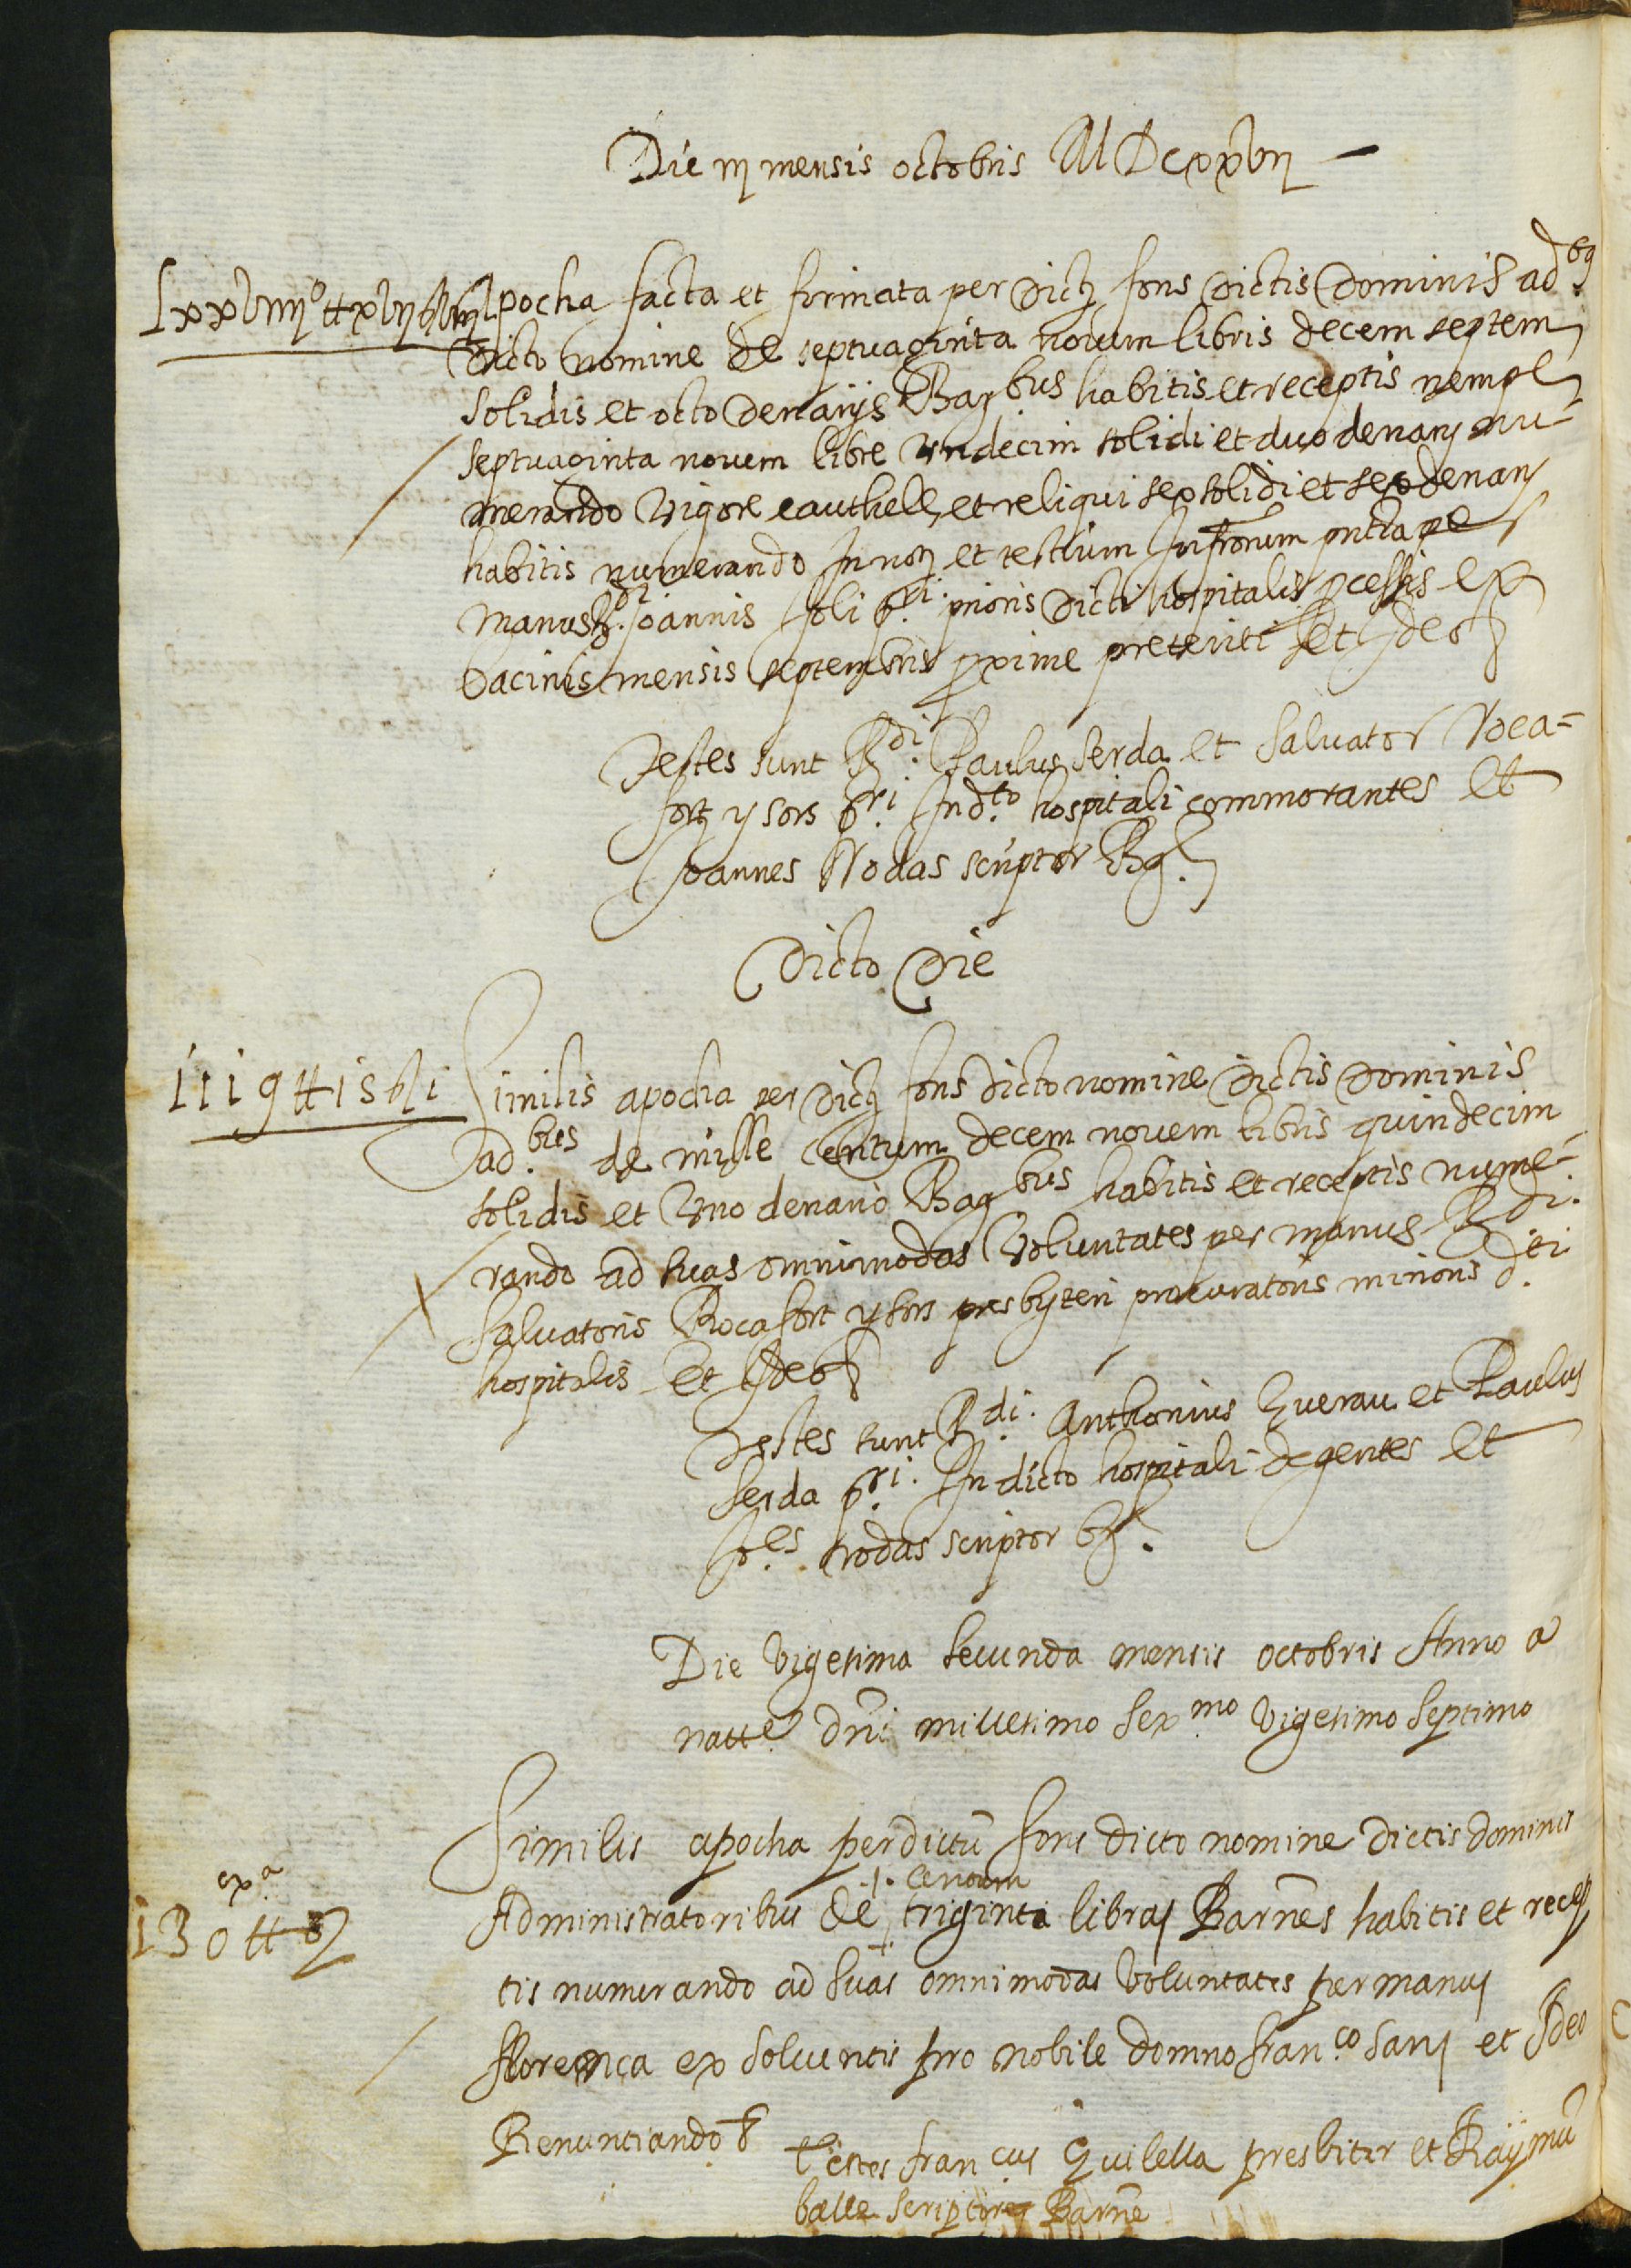 Die iij mensis octobris MDCxxvij
Lxxviiijº ℔ xvij ß viij Apocha facta et firmata per dictũ fons dictis Dominis ad.bꝫ
dicto nomine de septuaginta novem libris decem septem
solidis et octo denarijs Barbus habitis et receptis nempe
septuaginta novem libre undecim solidi et duo denarij nu-
merando vigore cauthelle, et reliqui sex solidi et sex denarij
habitis numerando In not et testium Infrorum pntia per
manus R.di Joannis soli p.ri prioris dicti hospitalis processis ex
bacinis mensis septembris proxime preteriti Et Ideo &
Testes sunt R.di Paulus Serda et Salvator Roca=
fort y sors p.ri In d.to hospitali commorantes Et
Joannes Rodas scriptor Bar.
Dicto Die
1119 ℔ 15 ß 1 Similis apocha per dictũ fons dicto nomine dictis Dominis
ad.bus de mille Centum decem novem libris quindecim
solidis et Uno denario Barbus habitis et receptis nume-
rando ad suas omnimodas Voluntates per manus R.di
Salvatoris Rocafort y sors presbyteri procuratoris minoris d.ti
hospitalis Et Ideo &
Testes sunt R.di Anthonius Guerau et Paulus
Serda p.ri In dicto hospitali degentes Et
Jo.es rodas scriptor B.
Die Vigesima secunda mensis octobris Anno a
natte dñi millesimo sexmo Vigesimo septimo
Similis apocha per dictũ fons dicto nomine dictis dominis
exª
130 ℔ ß
centum
Administratoribus de triginta libras Barnes habitis et recep
tis numerando ad suas omnimodas Voluntates per manus
florença exsolventis pro nobile domno franco Sans et Ideo
Renuntiando &
testes francus Guilella presbiter et Raymũ
balle scriptores Barne